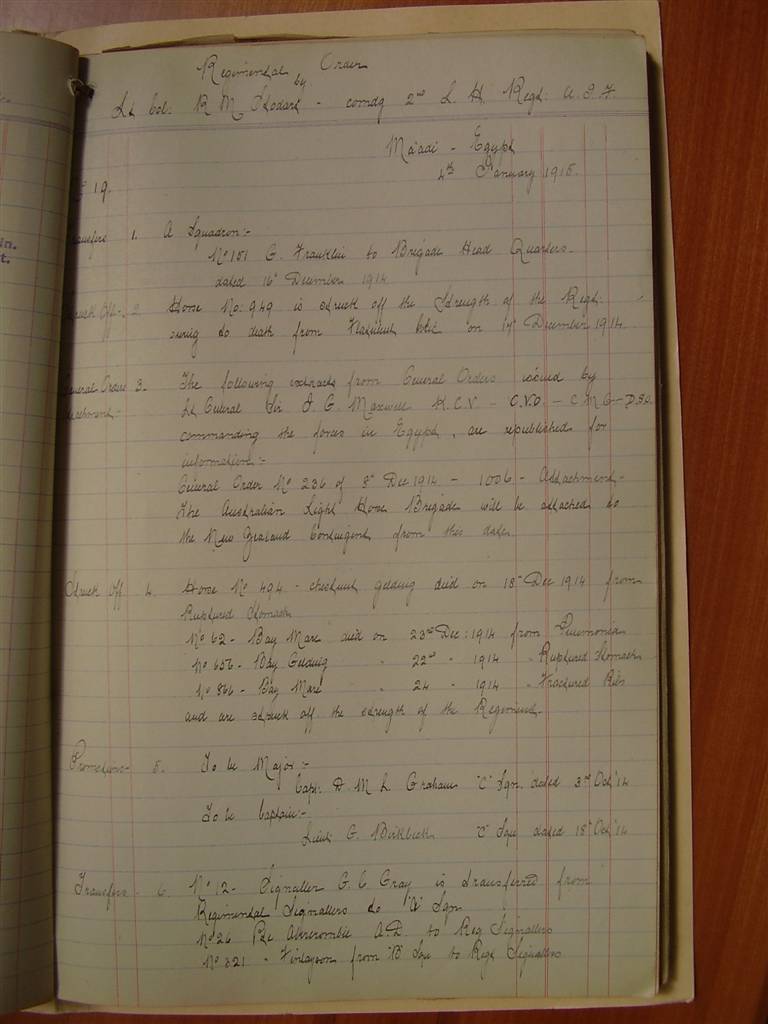 Regimental Order
by
Lt Col. R M Stodart - comdg 2nd L. H. Regt: A. I. F.
Ma'adi - Egypt
4th January 1915.
19.
1. A Squadron:-
No 151 G. Franklin to Brigade Head Quarters.
dated 16th December 1914
2. Horse No: 949 is struck off the Strength of the Regt:
owing to death from on December 1914.
General Orders 3. The following extracts from General Orders issued by
Lt General Sir J. G. Maxwell K.C.V. - C.V.O - C M G - D.S.O.
commanding the forces in Egypt, are republished for
information:-
General Order No 236 of 8th Dec 1914 - 1006 - Attachment -
The Australian Light Horse Brigade will be attached to
the New Zealand Contingent from this date.
Struck Off 4. Horse No 494 - chestnut gelding died on 18th Dec 1914 from
Ruptured Stomach
No 62 - Bay Mare died on 23rd Dec: 1914 from Pneumonia
No 656 - Bay Gelding " 22nd - 1914 " Ruptured Stomach
No 866 - Bay Mare " 24 - 1914 " Fractured Ribs
and are struck off the strength of the Regiment.
Promotions - 5. To be Major:-
Capt. D. M L Graham "C" Sqn. dated 3rd Oct '14
To be Captain:-
Lieut G. Birkbeck "C" Sqn dated 18th Oct '14
Transfers - 6. No 12 - Signaller G. C Gray is transferred from
Regimental Signallers to "A" Sqn
No 26 Pte Abercrombie A.D. to Reg Signallers
No 321 - Finlayson from "B" Sqn to Regt Signallers